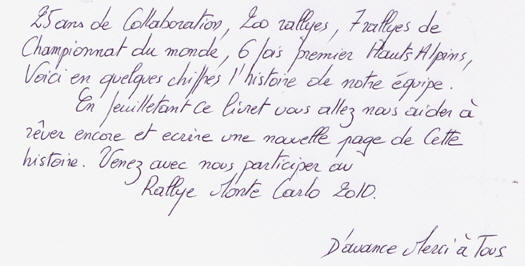 25 ans de Collaboration, 200 rallyes, 7 rallyes de
Championnat du monde, 6 fois premier Hauts Alpins,
Voici en quelques chiffres l'histoire de notre équipe.
En feuilletant ce livret vous allez nous aider à
rêver encore et ecrire une nouvelle page de Cette
histoire. Venez avec nous participer au
Rallye Monte Carlo 2010.
D'avance Merci à Tous